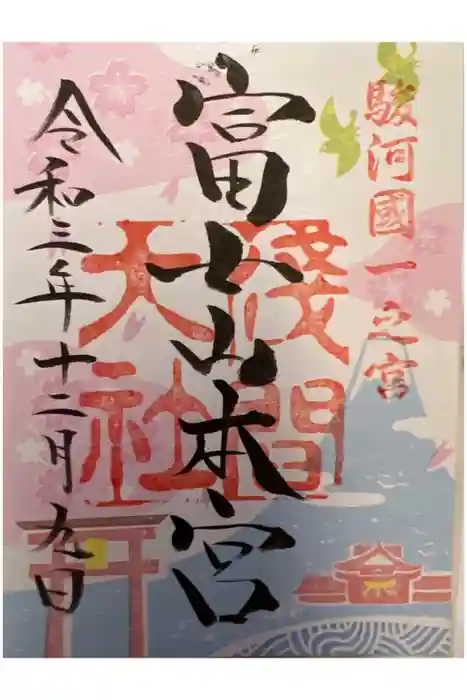 駿河國一之宮
富士山本宮
淺間
大社
令和三年十二月九日